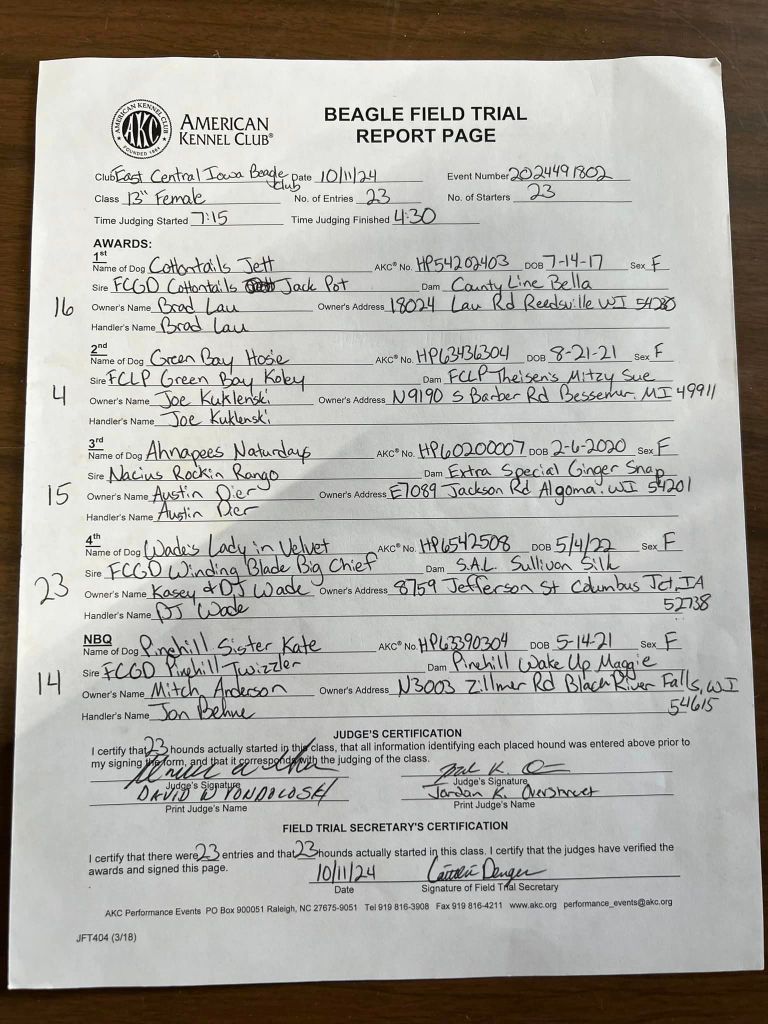 AMERICAN KENNEL CLUB
AKC
FOUNDED 1884
AMERICAN KENNEL CLUB®
BEAGLE FIELD TRIAL REPORT PAGE
Club East Central Iowa Beagle Club Date 10/11/24 Event Number 2024491802
Class 13" Female No. of Entries 23 No. of Starters 23
Time Judging Started 7:15 Time Judging Finished 4:30
AWARDS:
1st
Name of Dog Cottontails Jett AKC® No. HP54202403 DOB 7-14-17 Sex F
Sire FCGD Cottontails Jack Pot Dam County Line Bella
16 Owner's Name Brad Lau Owner's Address 18024 Lau Rd Reedsville WI 54230
Handler's Name Brad Lau
2nd
Name of Dog Green Bay Hosie AKC® No. HP63436304 DOB 8-21-21 Sex F
Sire FCLP Green Bay Koley Dam FCLP Theisen's Mitzy Sue
4 Owner's Name Joe Kuklenski Owner's Address N9190 S Barber Rd Bessemer, MI 49911
Handler's Name Joe Kuklenski
3rd
Name of Dog Ahnapees Naturdays AKC® No. HP60200007 DOB 2-6-2020 Sex F
Sire Nacius Rockin Rango Dam Extra Special Ginger Snap
15 Owner's Name Austin Dier Owner's Address E7089 Jackson Rd Algoma, WI 54201
Handler's Name Austin Dier
4th
Name of Dog Wade's Lady in Velvet AKC® No. HP6542508 DOB 5/4/22 Sex F
Sire FCGD Winding Blade Big Chief Dam S.A.L. Sullivan Silk
23 Owner's Name Kasey & DJ Wade Owner's Address 8759 Jefferson St Columbus Jct, IA
Handler's Name DJ Wade 52738
NBQ
Name of Dog Pinehill Sister Kate AKC® No. HP63390304 DOB 5-14-21 Sex F
Sire FCGD Pinehill Twizzler Dam Pinehill Wake Up Maggie
14 Owner's Name Mitch Anderson Owner's Address N3003 Zillmer Rd Black River Falls, WI
Handler's Name Jon Behne 54615
JUDGE'S CERTIFICATION
I certify that 23 hounds actually started in this class, that all information identifying each placed hound was entered above prior to
my signing the form, and that it corresponds with the judging of the class.
Judge's Signature Judge's Signature
DAVID W Jordan K. Overstreet
Print Judge's Name Print Judge's Name
FIELD TRIAL SECRETARY'S CERTIFICATION
I certify that there were 23 entries and that 23 hounds actually started in this class. I certify that the judges have verified the
awards and signed this page.
10/11/24
Date Signature of Field Trial Secretary
AKC Performance Events PO Box 900051 Raleigh, NC 27675-9051 Tel 919 816-3908 Fax 919 816-4211 www.akc.org performance_events@akc.org
JFT404 (3/18)